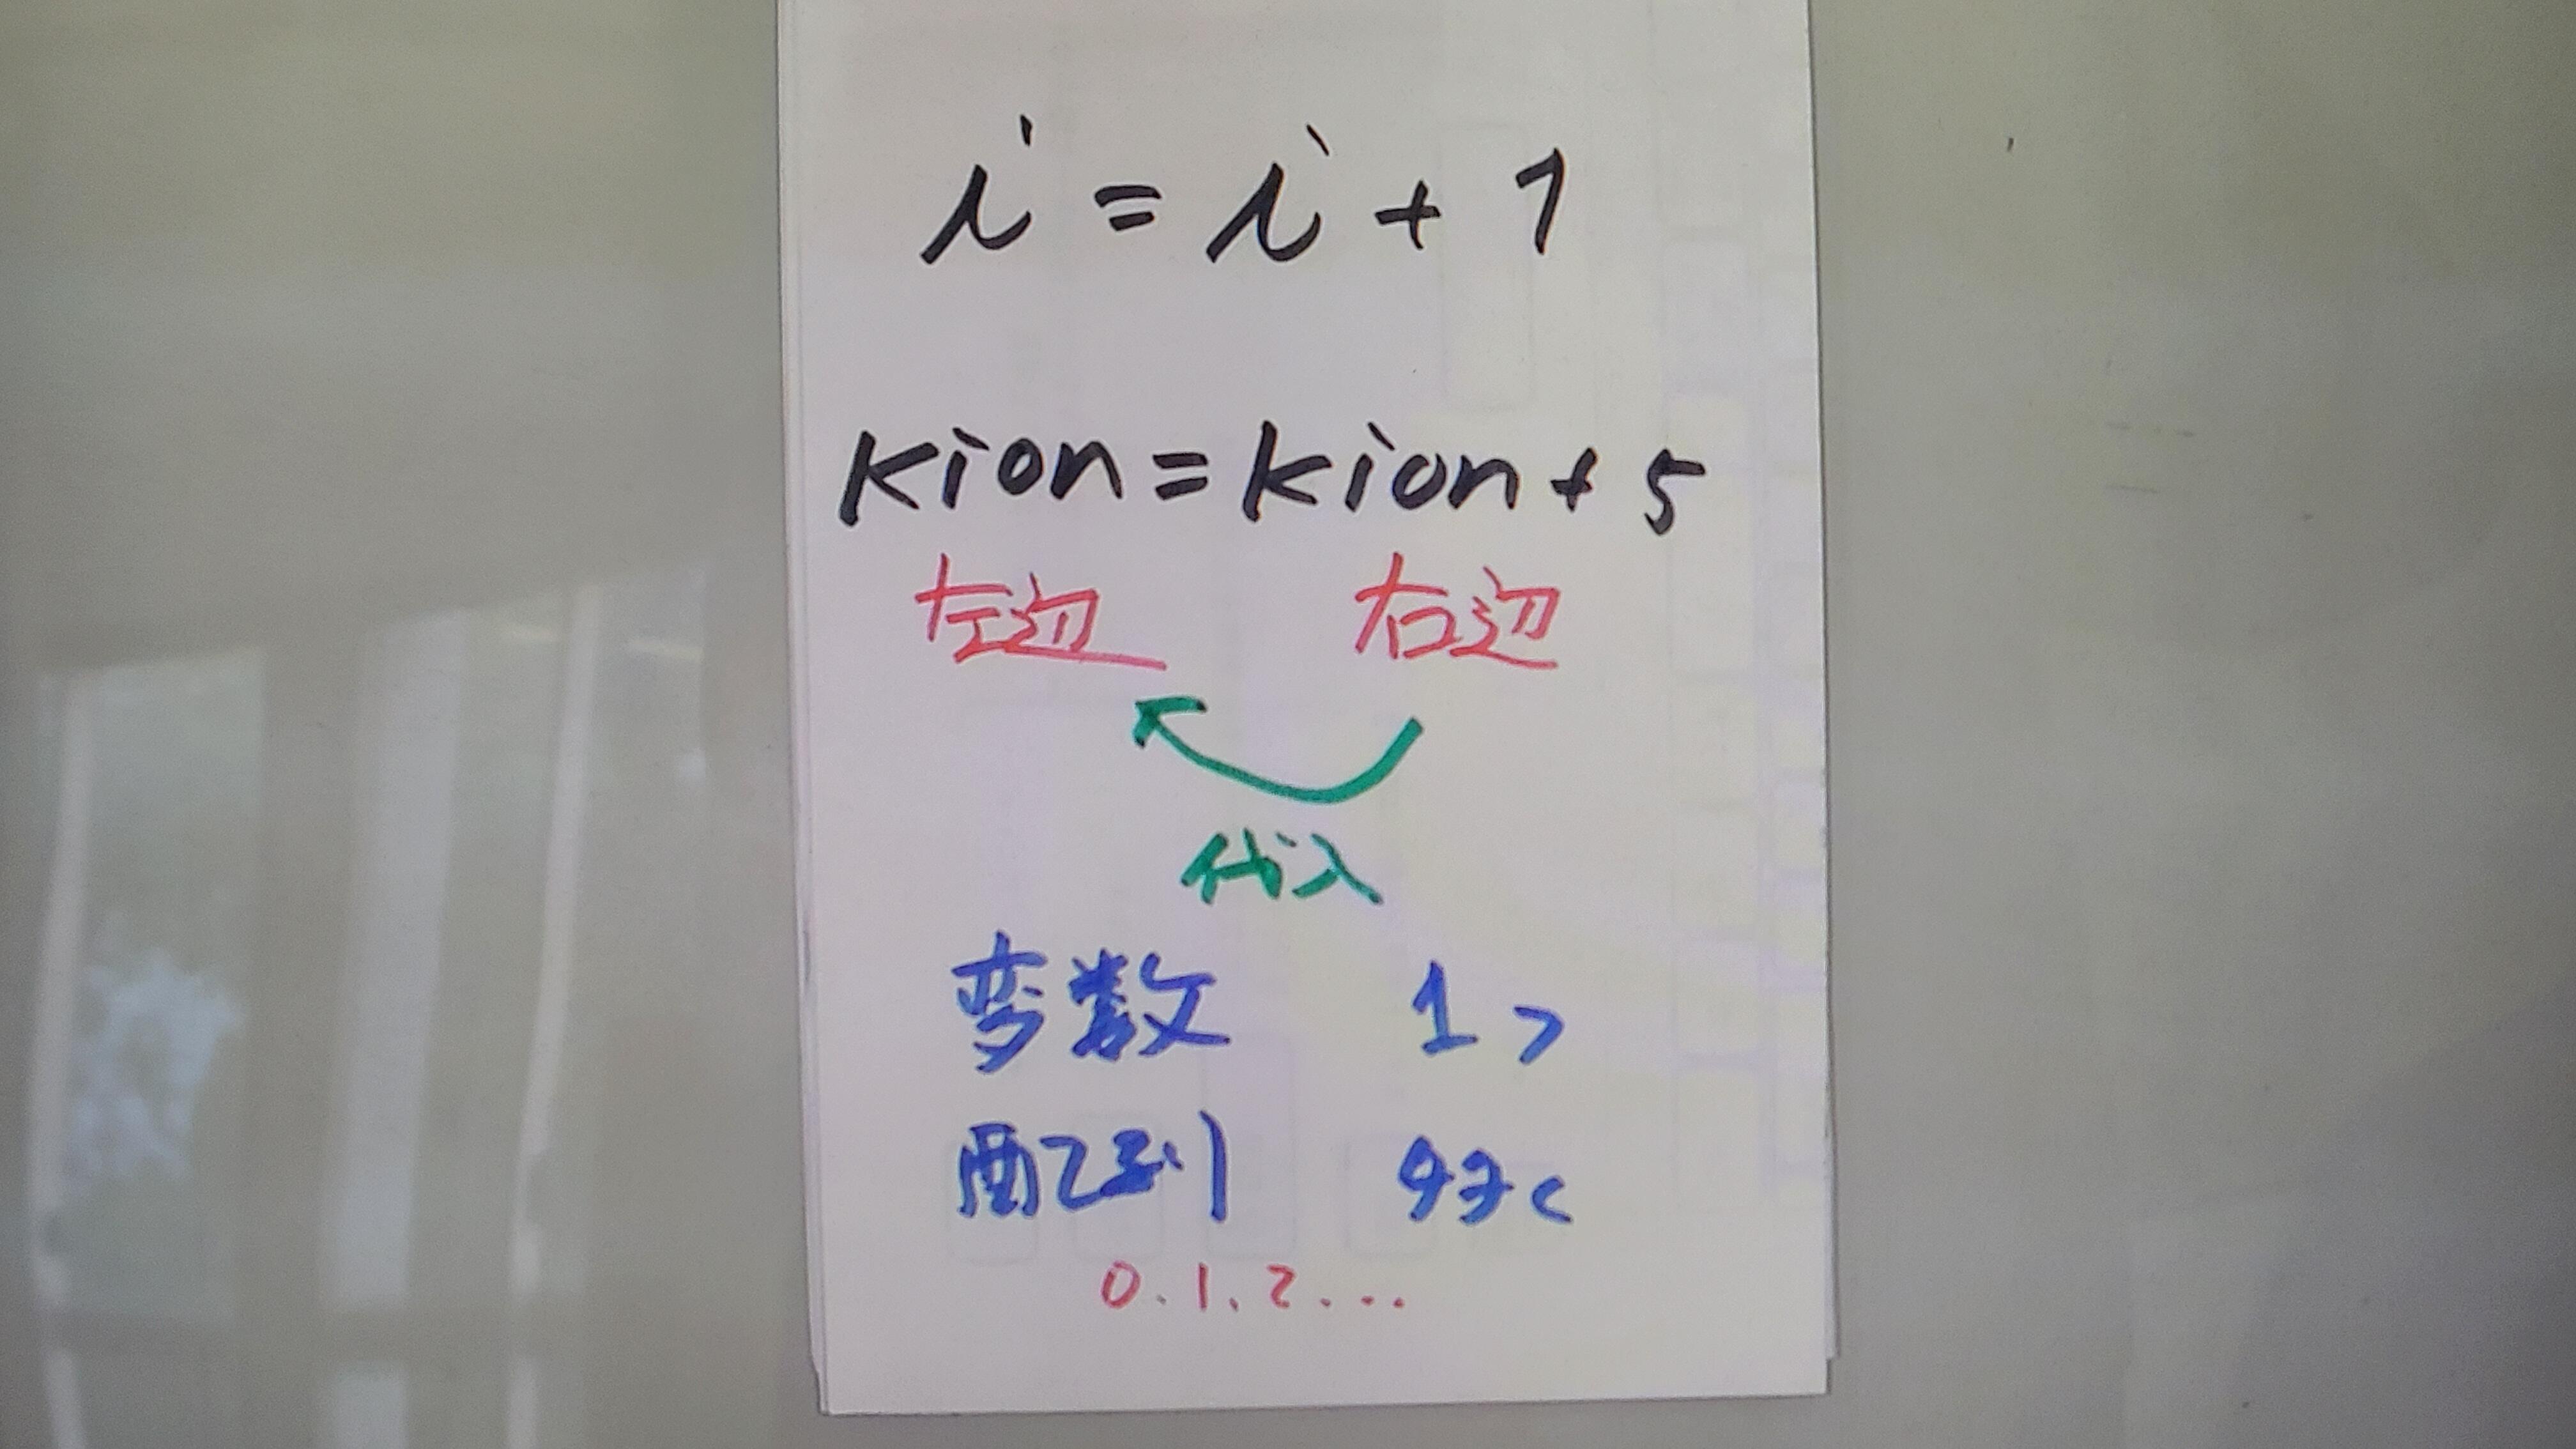 i = i + 1
kion = kion + 5
左辺 右辺
代入
変数 1つ
配列 多く
0.1.2...